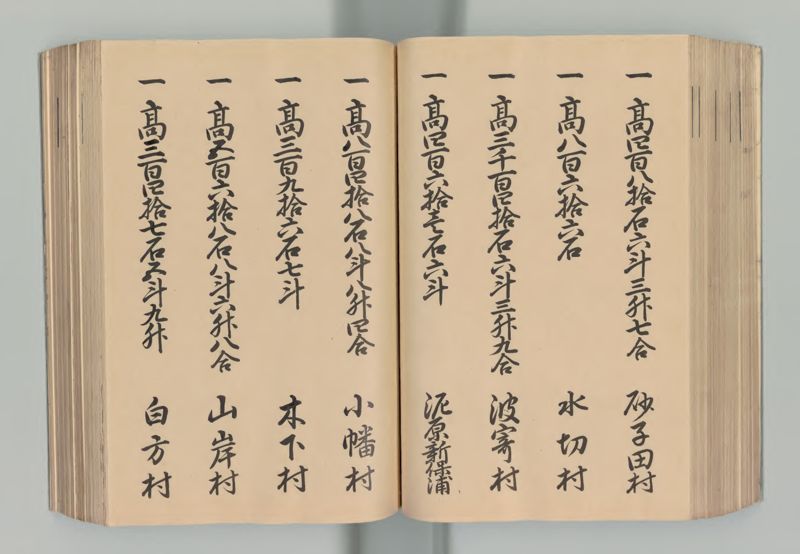 一 高四百八拾石六斗三升七合 砂子田村
一 高八百六拾六石 水切村
一 高三千百四拾石六斗三升九合 波寄村
一 高四百六拾壱石六斗 泥原新保浦
一 高八百四拾八石八斗八升四合 小幡村
一 高三百九拾六石七斗 木下村
一 高五百六拾八石八斗六升八合 山岸村
一 高三百四拾七石五斗九升 白方村